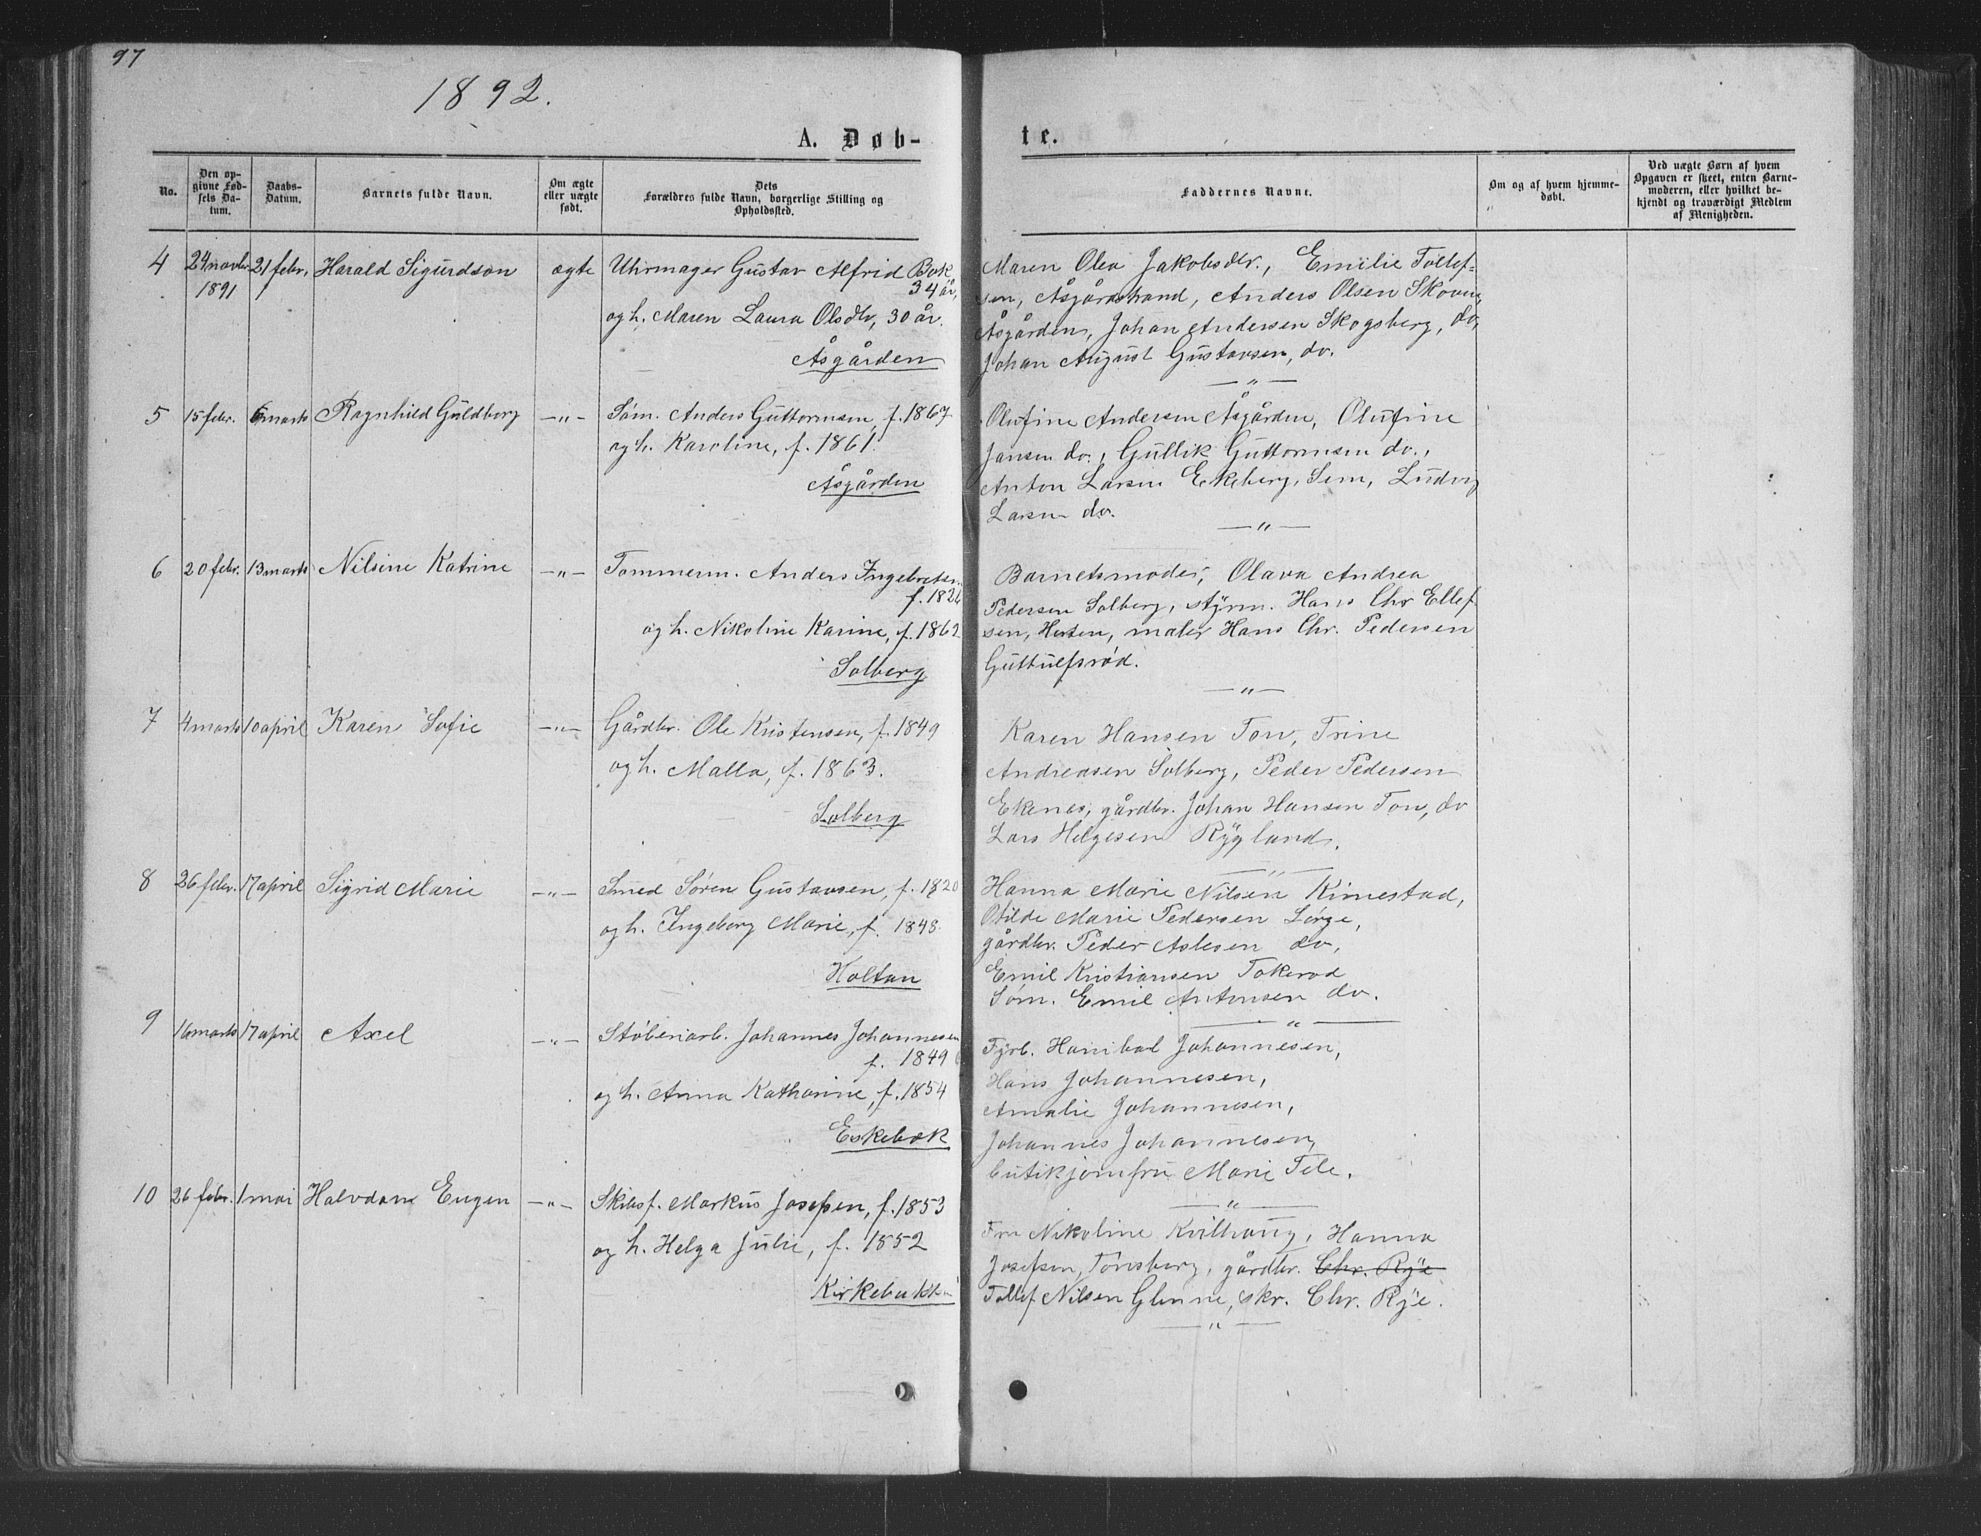 97
1892.
A. Døb-
No.
Den op-
givne Fød-
sels Da-
tum.
Daabs-
Datum.
Barnets fulde Navn.
Om ægte
eller uægte
født.
Dets
Forældres fulde Navn, borgerlige Stilling og
Opholdssted.
4
24 novbr
1891
21 febr.
Harald Sigurdson
ægte
Uhrmager Gustav Alfrid Bok
34 år,
og h. Maren Laura Olsdtr, 30 år.
Åsgården
5
15 febr.
6 marts
Ragnhild Guldborg
—"—
Søm. Anders Guttormsen, f. 1867
og h. Karoline, f. 1861.
Åsgården
6
20 febr.
13 marts
Nilsine Katrine
—"—
Tømmerm. Anders Ingebretsen
f. 1826
og h. Nikoline Karine, f. 1862
Solberg
7
4 marts
10 april
Karen Sofie
—"—
Gårdbr. Ole Kristensen, f. 1849
og h. Malla, f. 1863.
Solberg
8
26 febr.
17 april
Sigrid Marie
—"—
Smed Søren Gustavsen, f. 1820
og h. Ingeborg Marie, f. 1848.
Holtan
9
16 marts
17 april
Axel
—"—
Støberiarb. Johannes Johannesen
f. 1849
og h. Anna Katharine, f. 1854
Eskebæk
10
26 febr.
1 mai
Halvdan Eugen
—"—
Skibsf. Markus Josefsen, f. 1853
og h. Helga Julie, f. 1852
Kirkebakken
te.
Faddernes Navne.
Om og af hvem hjemme-
døbt.
Ved uægte Børn af hvem
Opgaven er skeet, enten Barne-
moderen, eller hvilket be-
kjendt og troværdigt Medlem
af Menigheden.
Maren Olea Jakobsdtr., Emilie Tollef-
sen, Åsgårdstrand, Anders Olsen Skovn,
Åsgården, Johan Andersen Skogsberg, do,
Johan August Gustavsen, do.
—"—
Olufine Andersen Åsgården, Olufine
Jansen do., Gullik Guttormsen do.,
Anton Larsen Ekeberg, Sem, Ludvig
Larsen do.
—"—
Barnetsmoder, Olava Andrea
Pedersen Solberg, styrm. Hans Chr Ellef-
sen, Hesten, maler Hans Chr. Pedersen
Guttulfsrød.
—"—
Karen Hansen Ton, Trine
Andreasen Solberg, Peder Pedersen
Ekenes, gårdbr. Johan Hansen Ton, do
Lars Helgesen Rygland.
—"—
Hanna Marie Nilsen Kimestad,
Otilde Marie Pedersen Lørge,
gårdbr. Peder Aslesen do,
Emil Kristiansen Tokerød
Søm. Emil Antonsen do.
—"—
Fyrb. Hanibal Johannesen,
Hans Johannesen,
Amalie Johannesen,
Johannes Johannesen,
butikjomfru Marie Tele.
—"—
Fru Nikoline Kvilhaug, Hanna
Josefsen, Tønsberg, gårdbr. Chr. Rye
Tollef Nilsen Glenne, skr. Chr. Rye.
—"—